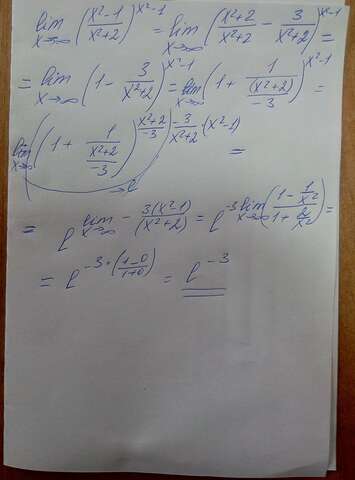 lim x→∞ ((x²-1)/(x²+2))^(x²-1) = lim x→∞ ((x²+2)/(x²+2) - 3/(x²+2))^(x²-1) =
= lim x→∞ (1 - 3/(x²+2))^(x²-1) = lim x→∞ (1 + 1/((x²+2)/-3))^(x²-1) =
lim x→∞ ((1 + 1/((x²+2)/-3))^((x²+2)/-3))^(-3/(x²+2) · (x²-1)) =
→e
= e^(lim x→∞ - 3(x²-1)/(x²+2)) = e^(-3 lim x→∞ ((1 - 1/x²)/(1 + 2/x²))) =
= e^(-3 · ((1-0)/(1+0))) = e^(-3)